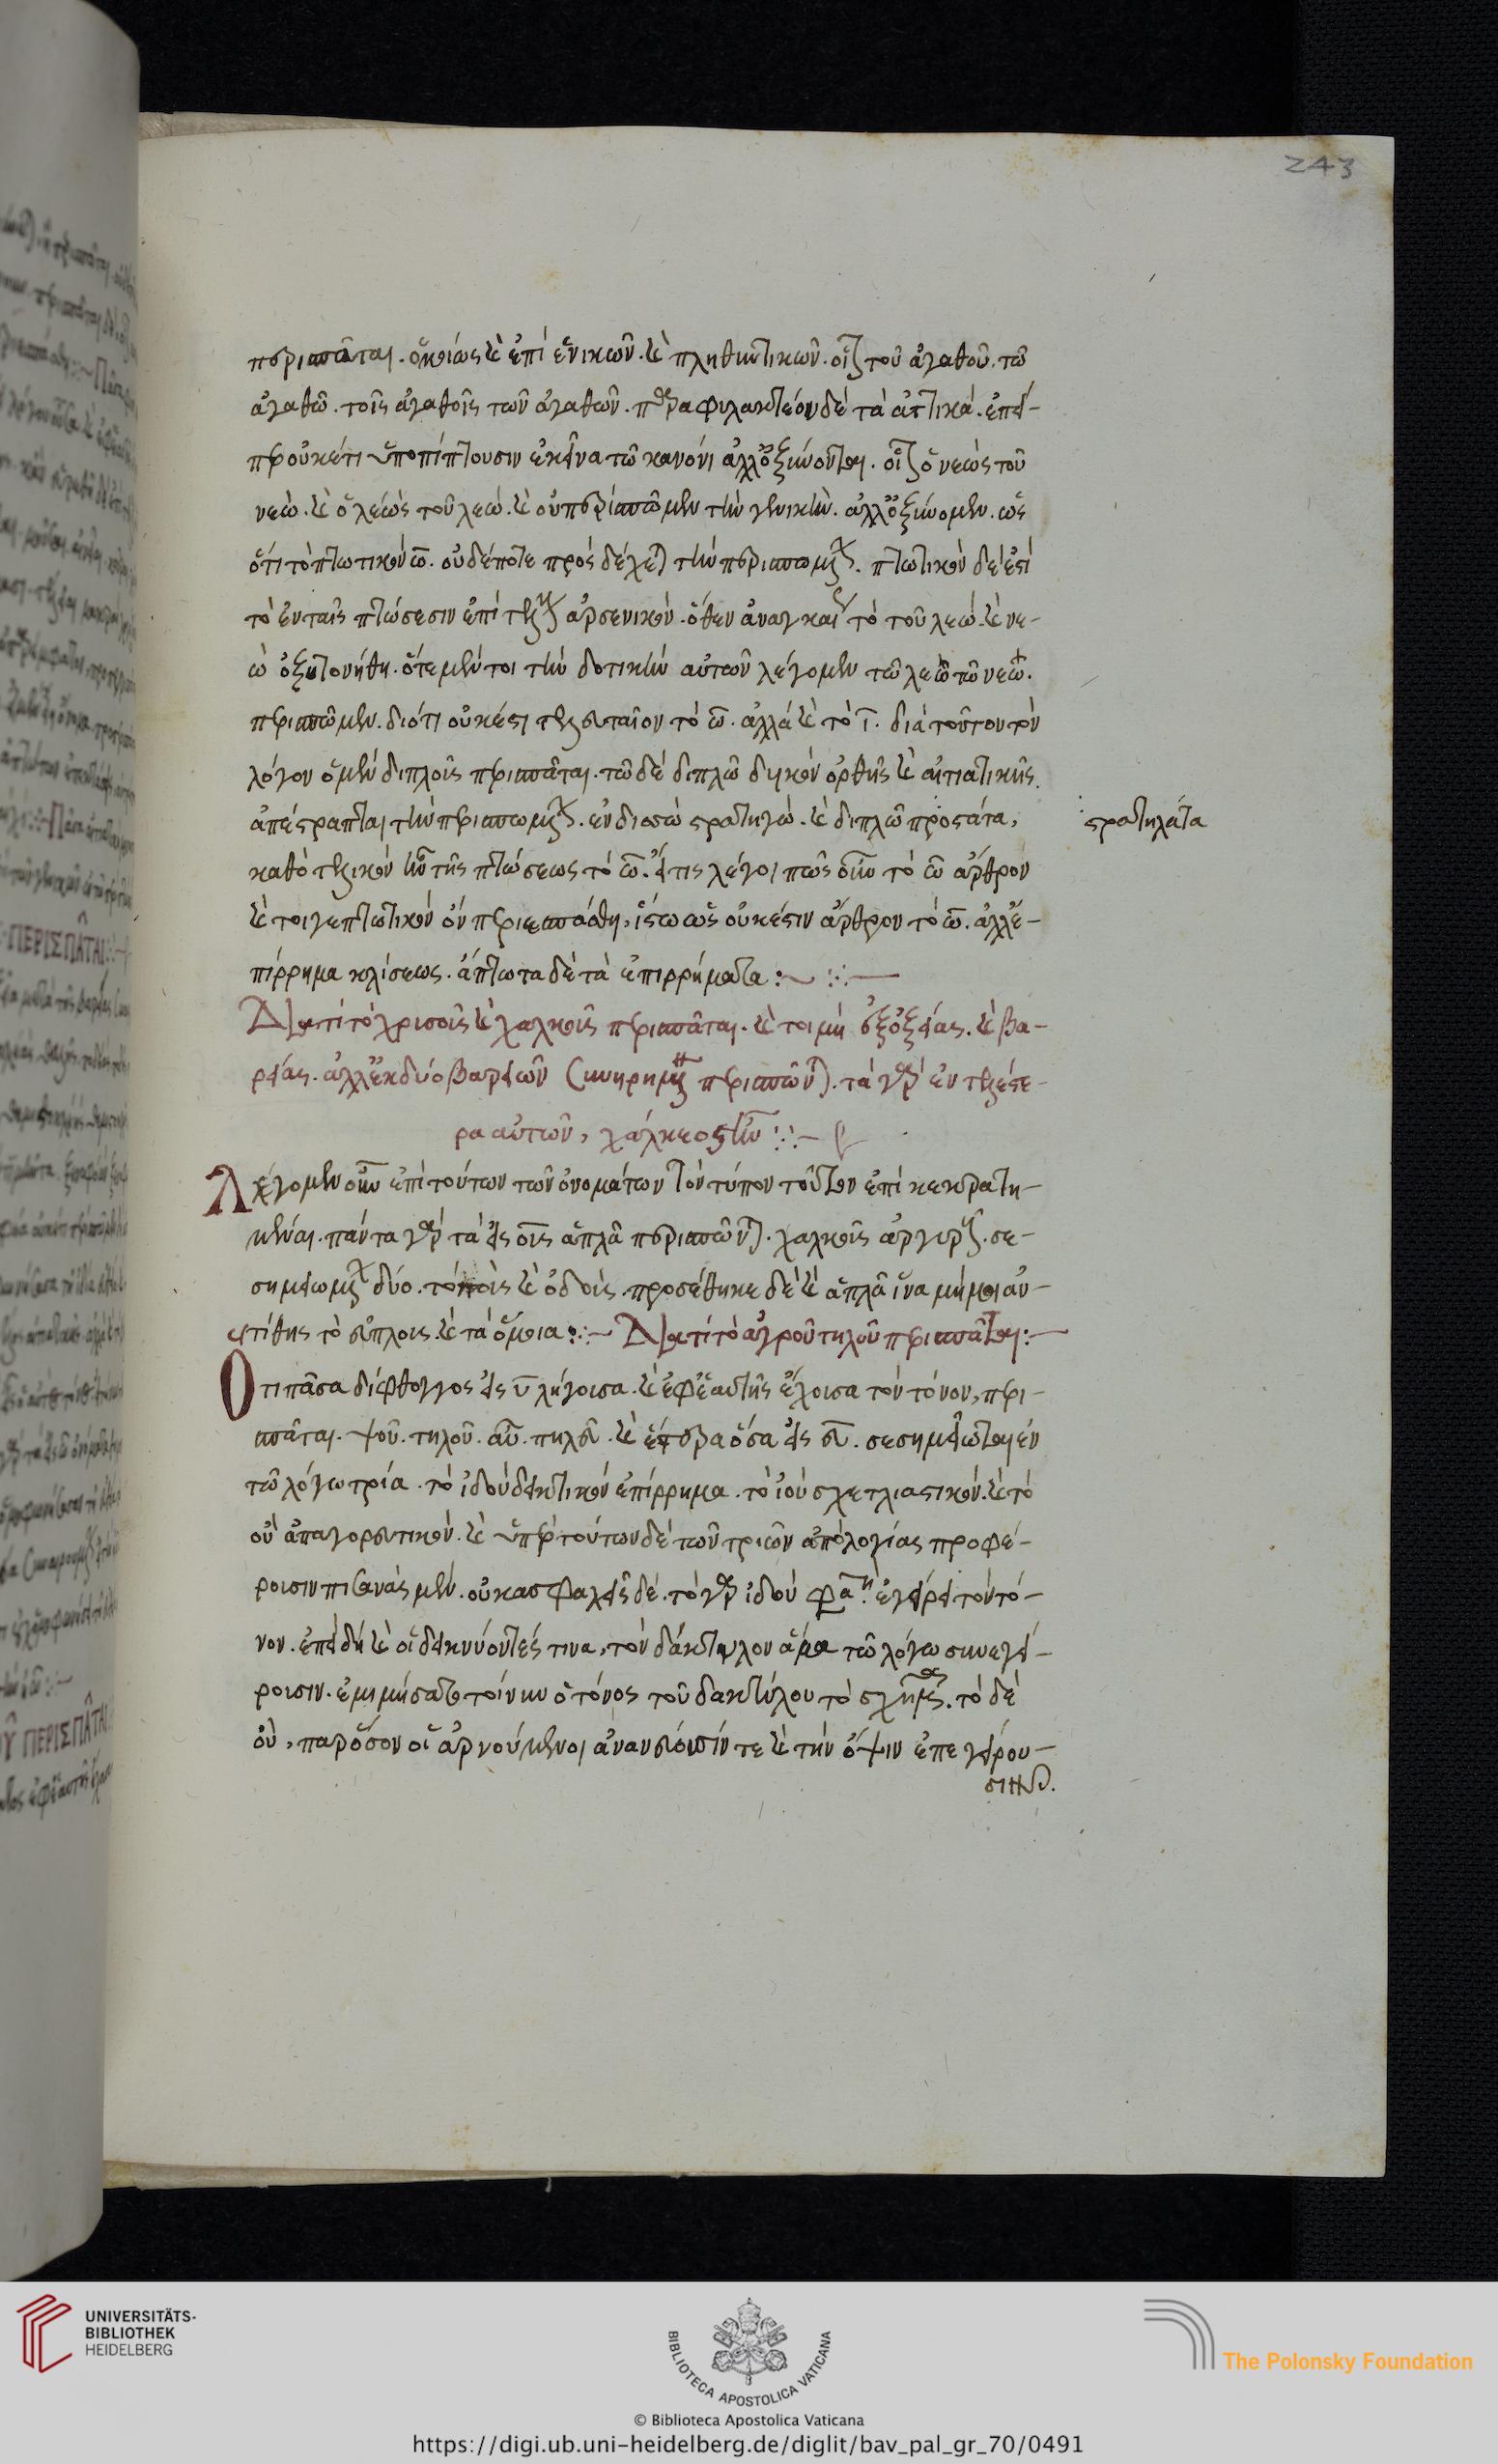 243
περισπᾶται. ὁμοίως καὶ ἐπὶ ἑνικῶν. καὶ πληθυντικῶν. οἷον τοῦ ἀγαθοῦ. τῶ
ἀγαθῶ. τοῖς ἀγαθοῖς τῶν ἀγαθῶν. παραφυλακτέον δὲ τὰ ἀττικά. ἐπεί-
περ οὐκέτι ὑποπίπτουσιν ἐκεῖνα τῶ κανόνι ἀλλ' ὀξύνονται. οἷον ὁ νεὼς τοῦ
νεώ. καὶ ὁ λεὼς τοῦ λεώ. καὶ οὐ περισπῶμεν τὴν γενικήν. ἀλλ' ὀξύνομεν. ὡς
ὅτι τὸ πτωτικὸν ω. οὐδέποτε προσδέχεται τὴν περισπωμένην. πτωτικὸν δέ ἐστι
τὸ ἐν ταῖς πτώσεσιν ἐπὶ τέλους ἀρσενικόν. ὅθεν ἀναγκαίως τὸ τοῦ λεώ. καὶ νε-
ὼ ὀξυτονήθη. ὅτε μέντοι τὴν δοτικὴν αὐτῶν λέγομεν τῶ λεῶ τῶ νεῶ.
περισπῶμεν. διότι οὐκέτι τελευταῖον τὸ ω. ἀλλὰ καὶ τὸ ι. διὰ τοῦτον τὸν
λόγον ὁ μὲν διπλοῦς περισπᾶται. τῶ δὲ διπλῶ δυικὸν ὀρθῆς καὶ αἰτιατικῆς.
ἀπέστραπται τὴν περισπωμένην. ἐν δισσὼ στρατηγώ. καὶ διπλῶ προστάτα,
στρατηλάτα
καθὸ τελικὸν ἦν τῆς πτώσεως τὸ ω. εἴ τις λέγοι πῶς οὖν τὸ ὦ ἄρθρον
καὶ τοιγε πτωτικὸν ὂν περιεσπάσθη, ἴστω ὡς οὐκ ἔστιν ἄρθρον τὸ ω. ἀλλ' ἐ-
πίρρημα κλίσεως. ἄπτωτα δὲ τὰ ἐπιρρήματα:
Διατί τὸ χρυσοῦς καὶ χαλκοῦς περισπᾶται. καὶ τοι μὴ ἐξ ὀξείας. καὶ βα-
ρείας. ἀλλ' ἐκ δύο βαρειῶν συνηρημένα περισπῶνται. τὰ γὰρ ἐντελέστε-
ρα αὐτῶν, χάλκεος ἦν:
Λέγομεν οὖν ἐπὶ τούτων τῶν ὀνομάτων τὸν τύπον τοῦτον ἐπικεκρατη-
κέναι. πάντα γὰρ τὰ εἰς ους ἁπλᾶ περισπῶνται. χαλκοῦς ἀργυροῦς. σε-
σημείωμαι δύο. τὸ ποὺς καὶ ὀδούς. προσέθηκε δὲ καὶ ἁπλᾶ ἵνα μή μοι ἀν-
τιθῆς τὸ εὔπλους καὶ τὰ ὅμοια: Διατί τὸ αὐτοῦ τηλοῦ περισπᾶται:
Ὅτι πᾶσα δίφθογγος εἰς υ λήγουσα. καὶ ἐφ' ἑαυτῆς ἔχουσα τὸν τόνον, περι-
σπᾶται. ποῦ. τηλοῦ. αὖ. πηλεῦ. καὶ ἕτερα ὅσα εἰς ευ. σεσημείωται ἐν
τῶ λόγω τρία. τὸ ἰδού δεικτικὸν ἐπίρρημα. τὸ ἰού σχετλιαστικόν. καὶ τὸ
οὐ ἀπαγορευτικόν. καὶ ὑπὲρ τούτων δὲ τῶν τριῶν ἀπολογίας προφέ-
ρουσιν πιθανὰς μέν. οὐκ ἀσφαλεῖς δέ. τὸ γὰρ ἰδού φασιν ἐγείρει τὸν τό-
νον. ἐπειδὴ καὶ οἱ δεικνύοντές τινα, τὸν δάκτυλον ἅμα τῶ λόγω συνεγεί-
ρουσιν. ἐμιμήσατο τοίνυν ὁ τόνος τοῦ δακτύλου τὸ σχῆμα. τὸ δὲ
οὐ, παρόσον οἱ ἀρνούμενοι ἀνανεύουσίν τε καὶ τὴν ὄψιν ἐπεγείρου-
σιν.
UNIVERSITÄTS-
BIBLIOTHEK
HEIDELBERG
BIBLIOTECA APOSTOLICA VATICANA
The Polonsky Foundation
© Biblioteca Apostolica Vaticana
https://digi.ub.uni-heidelberg.de/diglit/bav_pal_gr_70/0491